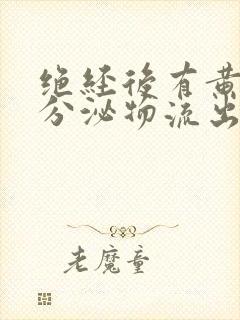 绝经後有黄
分泌物流出
老魔童